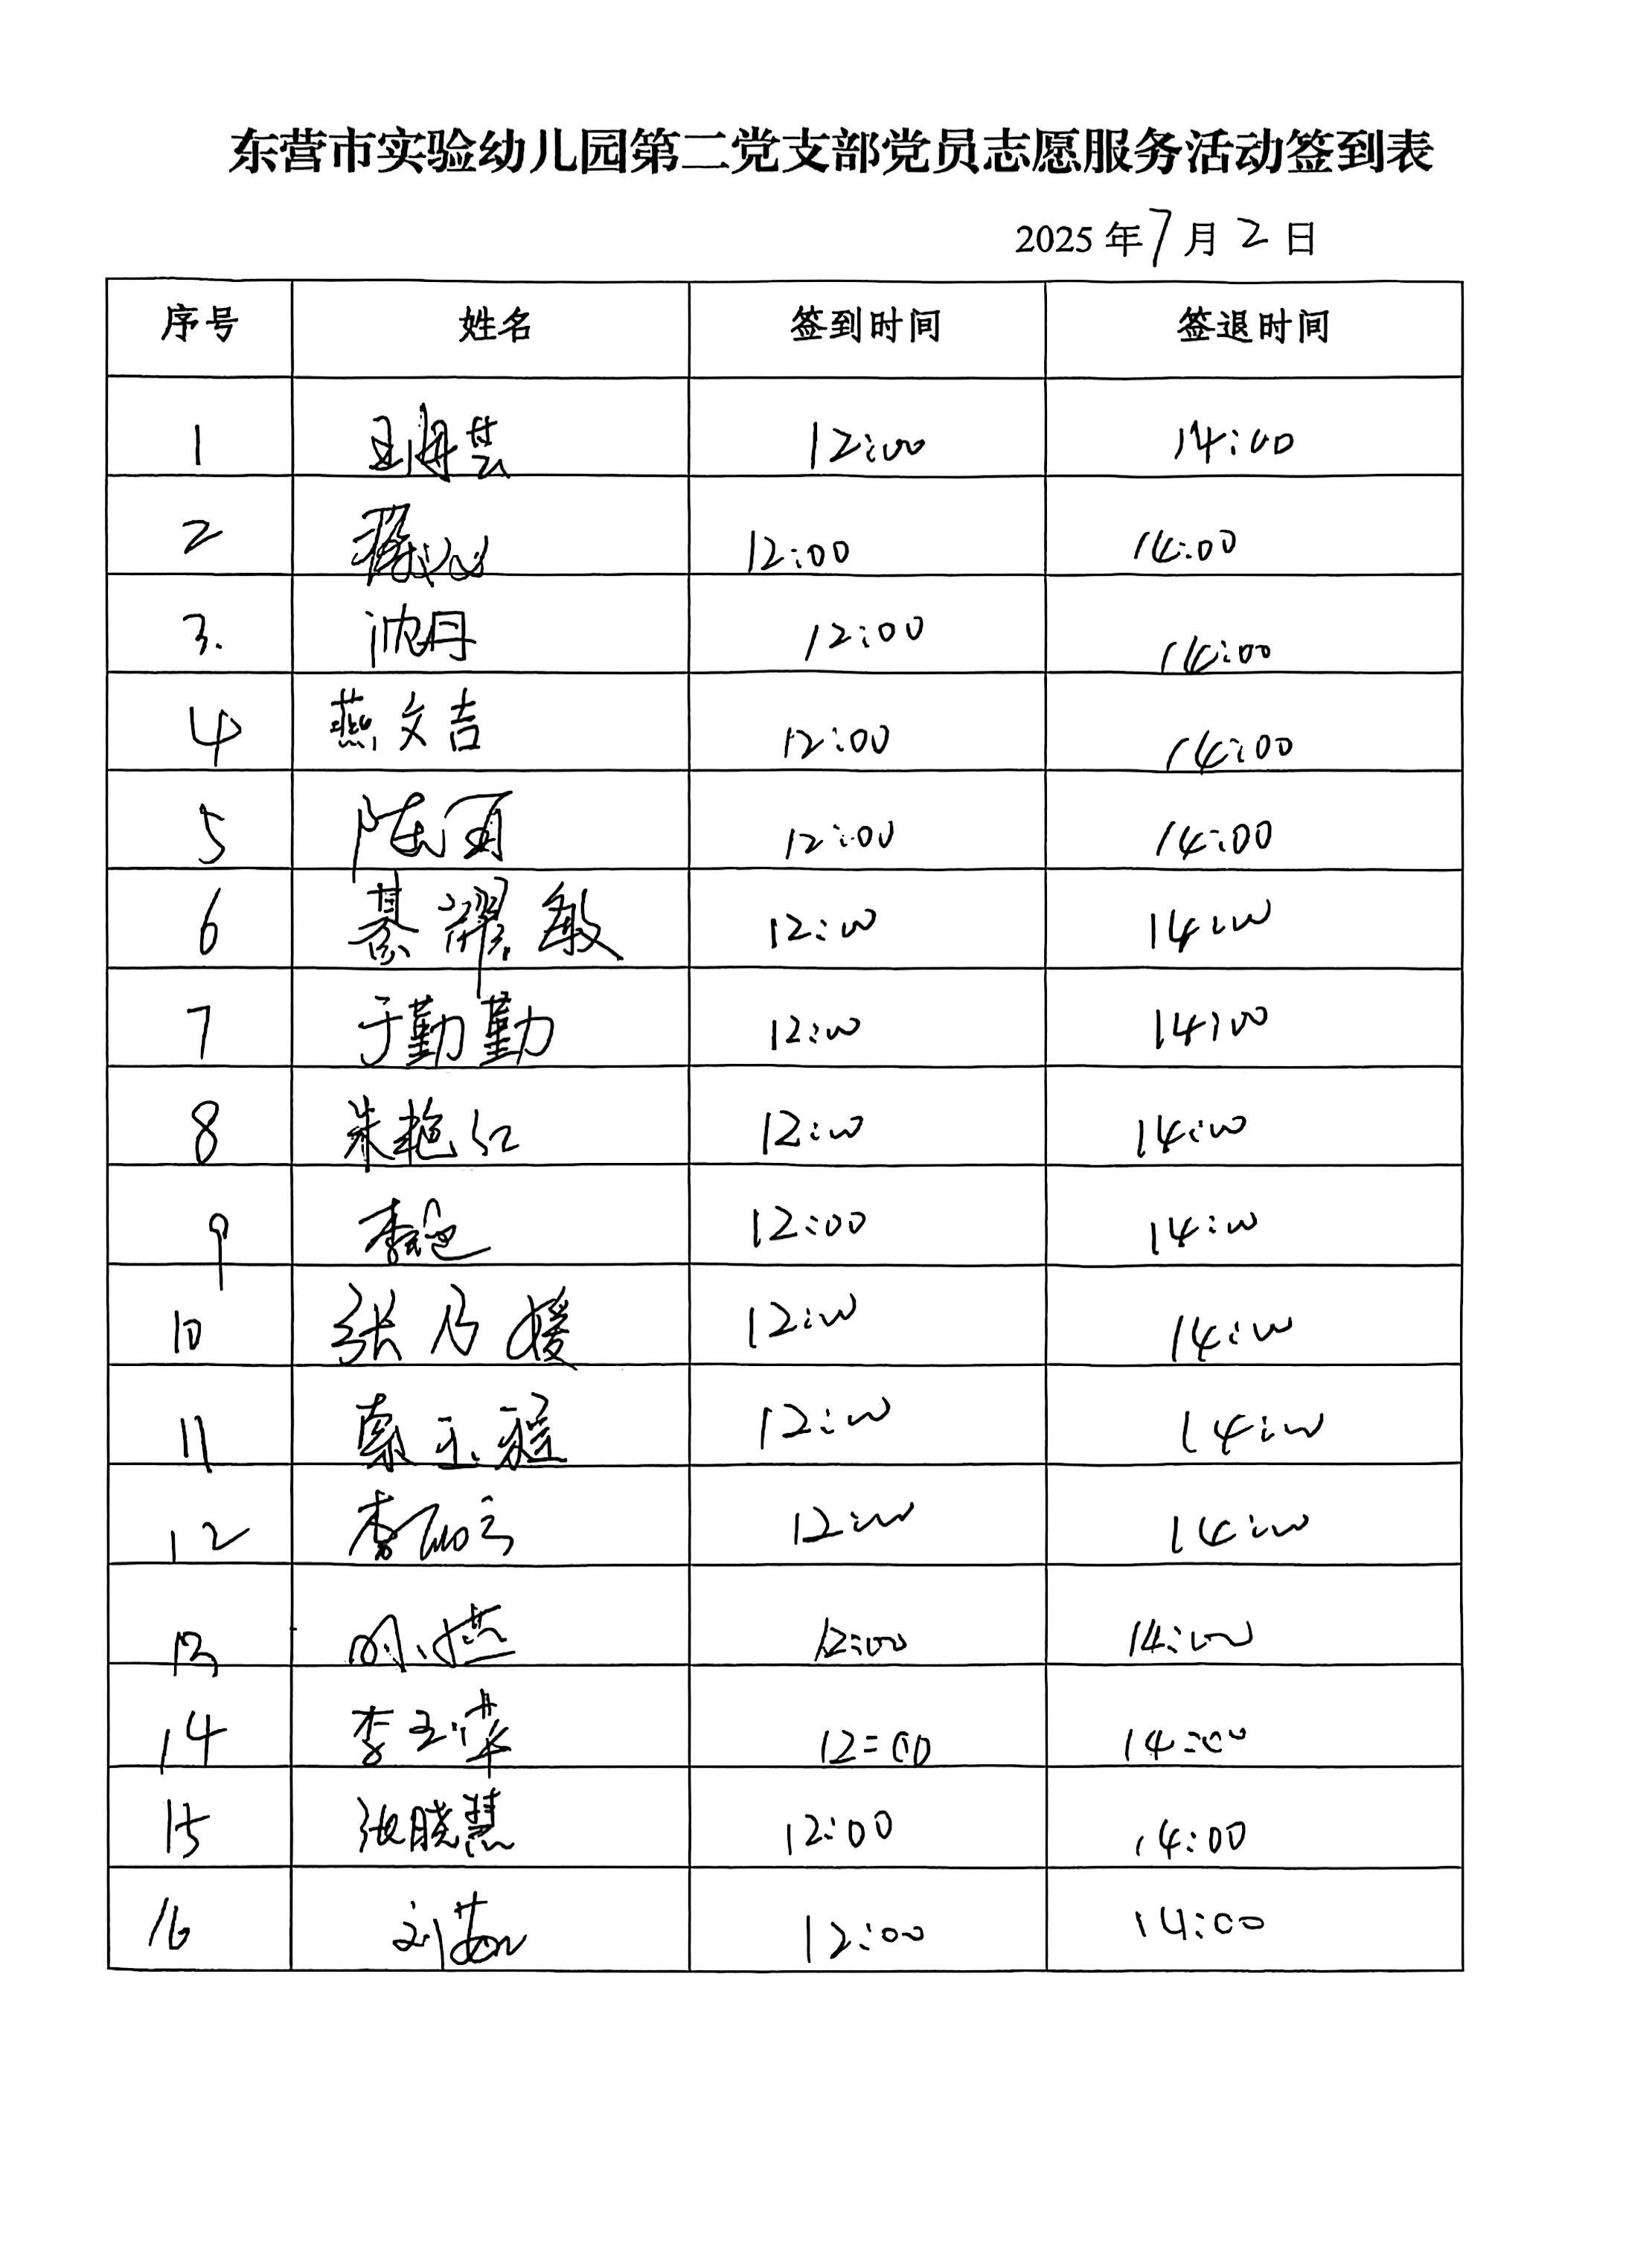 东营市实验幼儿园第二党支部党员志愿服务活动签到表
2025 年 7 月 2 日
序号 姓名 签到时间 签退时间
1 12:00 14:00
2 12:00 14:00
3. 沈丹 12:00 14:00
4 燕文吉 12:00 14:00
5 陈雨 12:00 14:00
6 綦耀敏 12:00 14:00
7 于勤勤 12:00 14:00
8 朱艳红 12:00 14:00
9 12:00 14:00
10 张乃媛 12:00 14:00
11 12:00 14:00
12 12:00 14:00
13 12:00 14:00
14 李玉苹 12:00 14:00
15 张晓慧 12:00 14:00
16 12:00 14:00